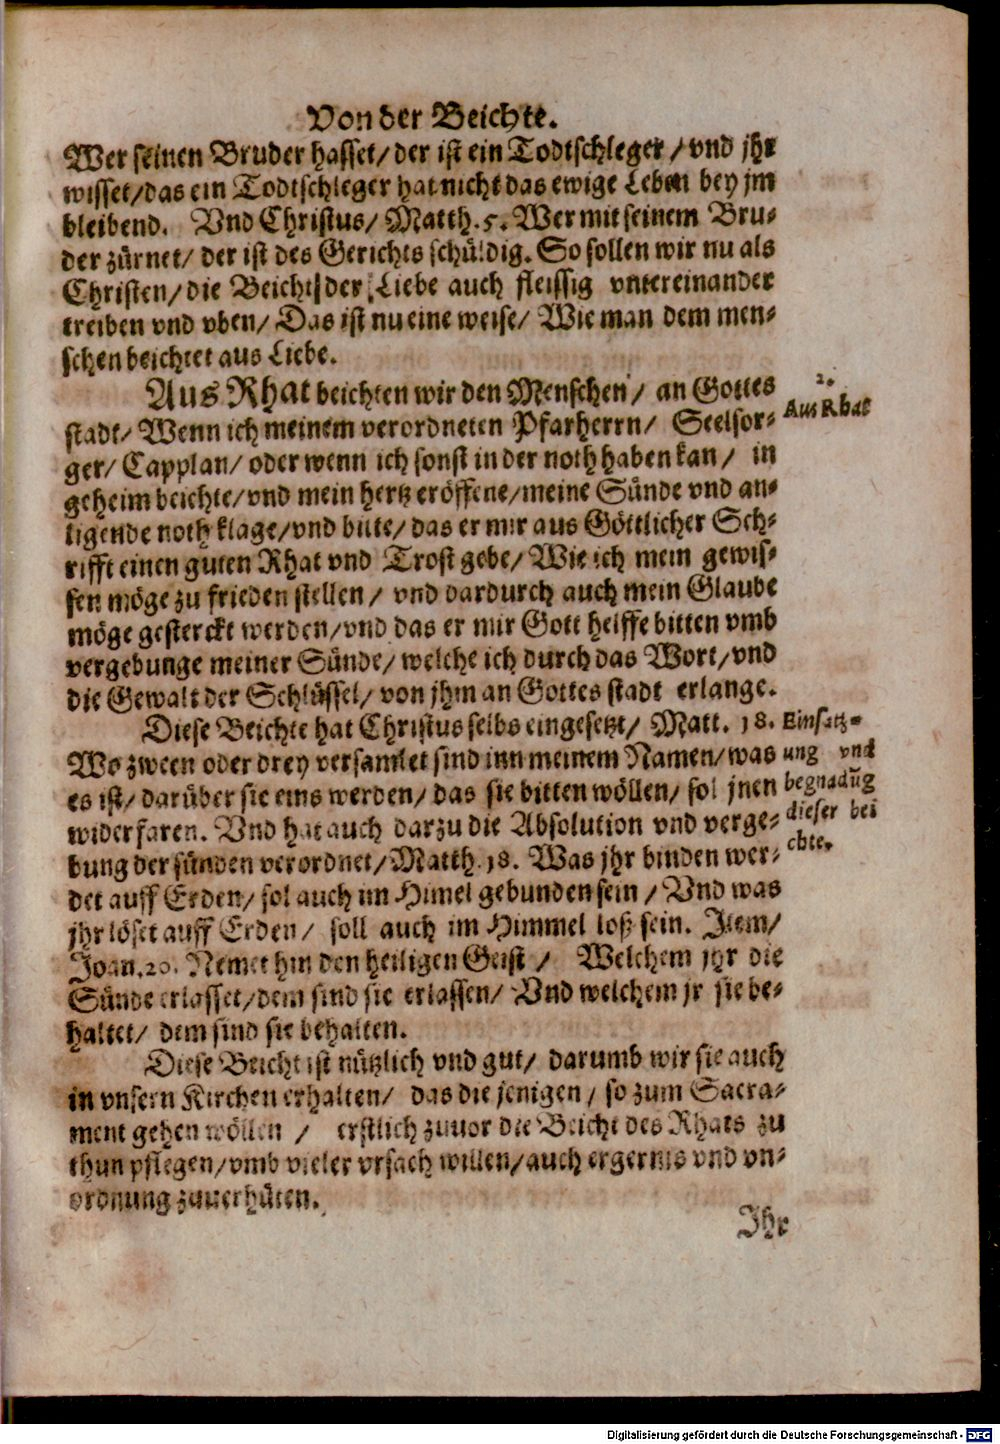 Von der Beichte.
Wer seinen Bruder hasset/ der ist ein Todtschleger / vnd jhr
wisset/ das ein Todtschleger hat nicht das ewige Leben bey jm
bleibend. Vnd Christus/ Matth. 5. Wer mit seinem Bru-
der zürnet/ der ist des Gerichts schüldig. So sollen wir nu als
Christen/ die Beicht der Liebe auch fleissig vntereinander
treiben vnd vben/ Das ist nu eine weise/ Wie man dem men-
schen beichtet aus Liebe.
Aus Rhat beichten wir den Menschen / an Gottes
stadt/ Wenn ich meinem verordneten Pfarherrn/ Seelsor-
ger/ Capplan/ oder wenn ich sonst in der noth haben kan/ in
geheim beichte/ vnd mein hertz eröffene/ meine Sünde vnd an-
ligende noth klage/ vnd bitte/ das er mir aus Göttlicher Sch-
rifft einen guten Rhat vnd Trost gebe/ Wie ich mein gewis-
sen möge zu frieden stellen / vnd dardurch auch mein Glaube
möge gesterckt werden/ vnd das er mir Gott helffe bitten vmb
vergebunge meiner Sünde/ welche ich durch das Wort/ vnd
die Gewalt der Schlüssel/ von jhm an Gottes stadt erlange.
Diese Beichte hat Christus selbs eingesetzt/ Matt. 18.
Wo zween oder drey versamlet sind inn meinem Namen/ was
es ist/ darüber sie eins werden/ das sie bitten wöllen/ sol jnen
widerfaren. Vnd hat auch darzu die Absolution vnd verge-
bung der sünden verordnet/ Matth. 18. Was jhr binden wer-
det auff Erden/ sol auch im Himel gebunden sein / Vnd was
jhr löset auff Erden/ soll auch im Himmel loß sein. Item/
Joan. 20. Nemet hin den heiligen Geist / Welchem jhr die
Sünde erlasset/ dem sind sie erlassen/ Vnd welchem jr sie be-
haltet/ dem sind sie behalten.
Diese Beicht ist nützlich vnd gut/ darumb wir sie auch
in vnsern Kirchen erhalten/ das die jenigen / so zum Sacra-
ment gehen wöllen / erstlich zuuor die Beicht des Rhats zu
thun pflegen/ vmb vieler vrsach willen/ auch ergernis vnd vn-
ordnung zuuerhüten.
Ihr
2.
Aus Rhat
Einsatz-
ung vnd
begnadūg
dieser bei
chte.
Digitalisierung gefördert durch die Deutsche Forschungsgemeinschaft - DFG